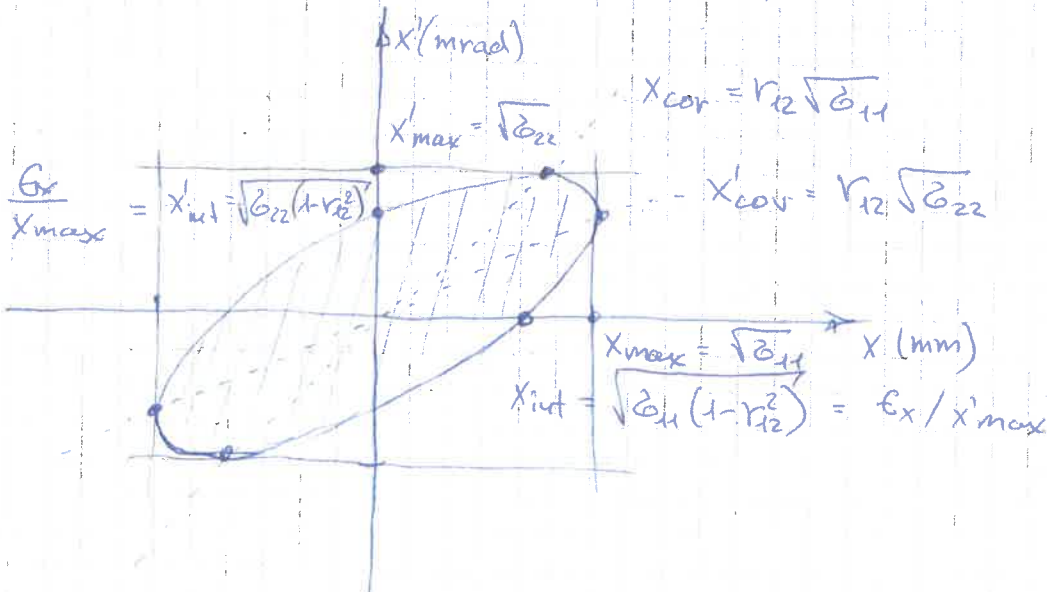 x'(mrad)
x_cor = r₁₂ √σ₁₁
x'max = √σ₂₂
εx / xmax = x'int = √σ₂₂(1-r₁₂²)
x'cor = r₁₂ √σ₂₂
xmax = √σ₁₁
x (mm)
xint = √σ₁₁(1-r₁₂²) = εx / x'max